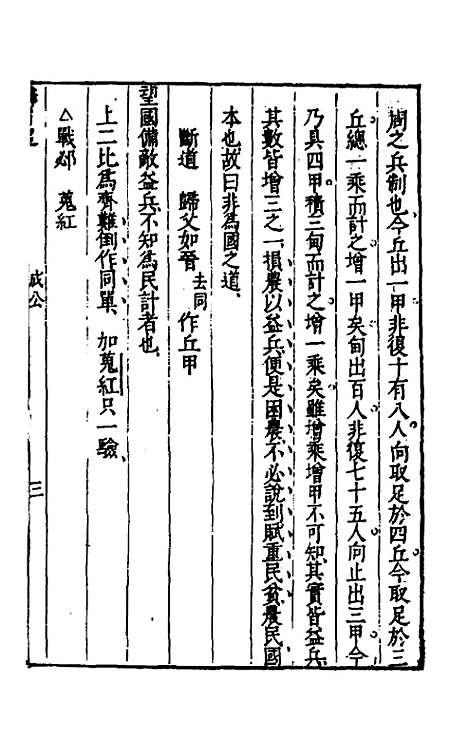 周之兵制也今丘出一甲非復十有八人向取足於四丘今取足於三
丘總一乘而計之增一甲矣甸出百人非復七十五人向止出三甲今
乃具四甲積三甸而計之增一乘矣雖增乘增甲不可知其實皆益兵
其數皆增三之一損農以益兵便是困農不必說到賦重民貧農民國
本也故曰非為國之道
斷道 歸父如晉 去同 作丘甲
望國備敵益兵不知為民計者也
上二比為齊難倒作同單 加蒐紅只一驗
△戰郯 蒐紅
成公
三